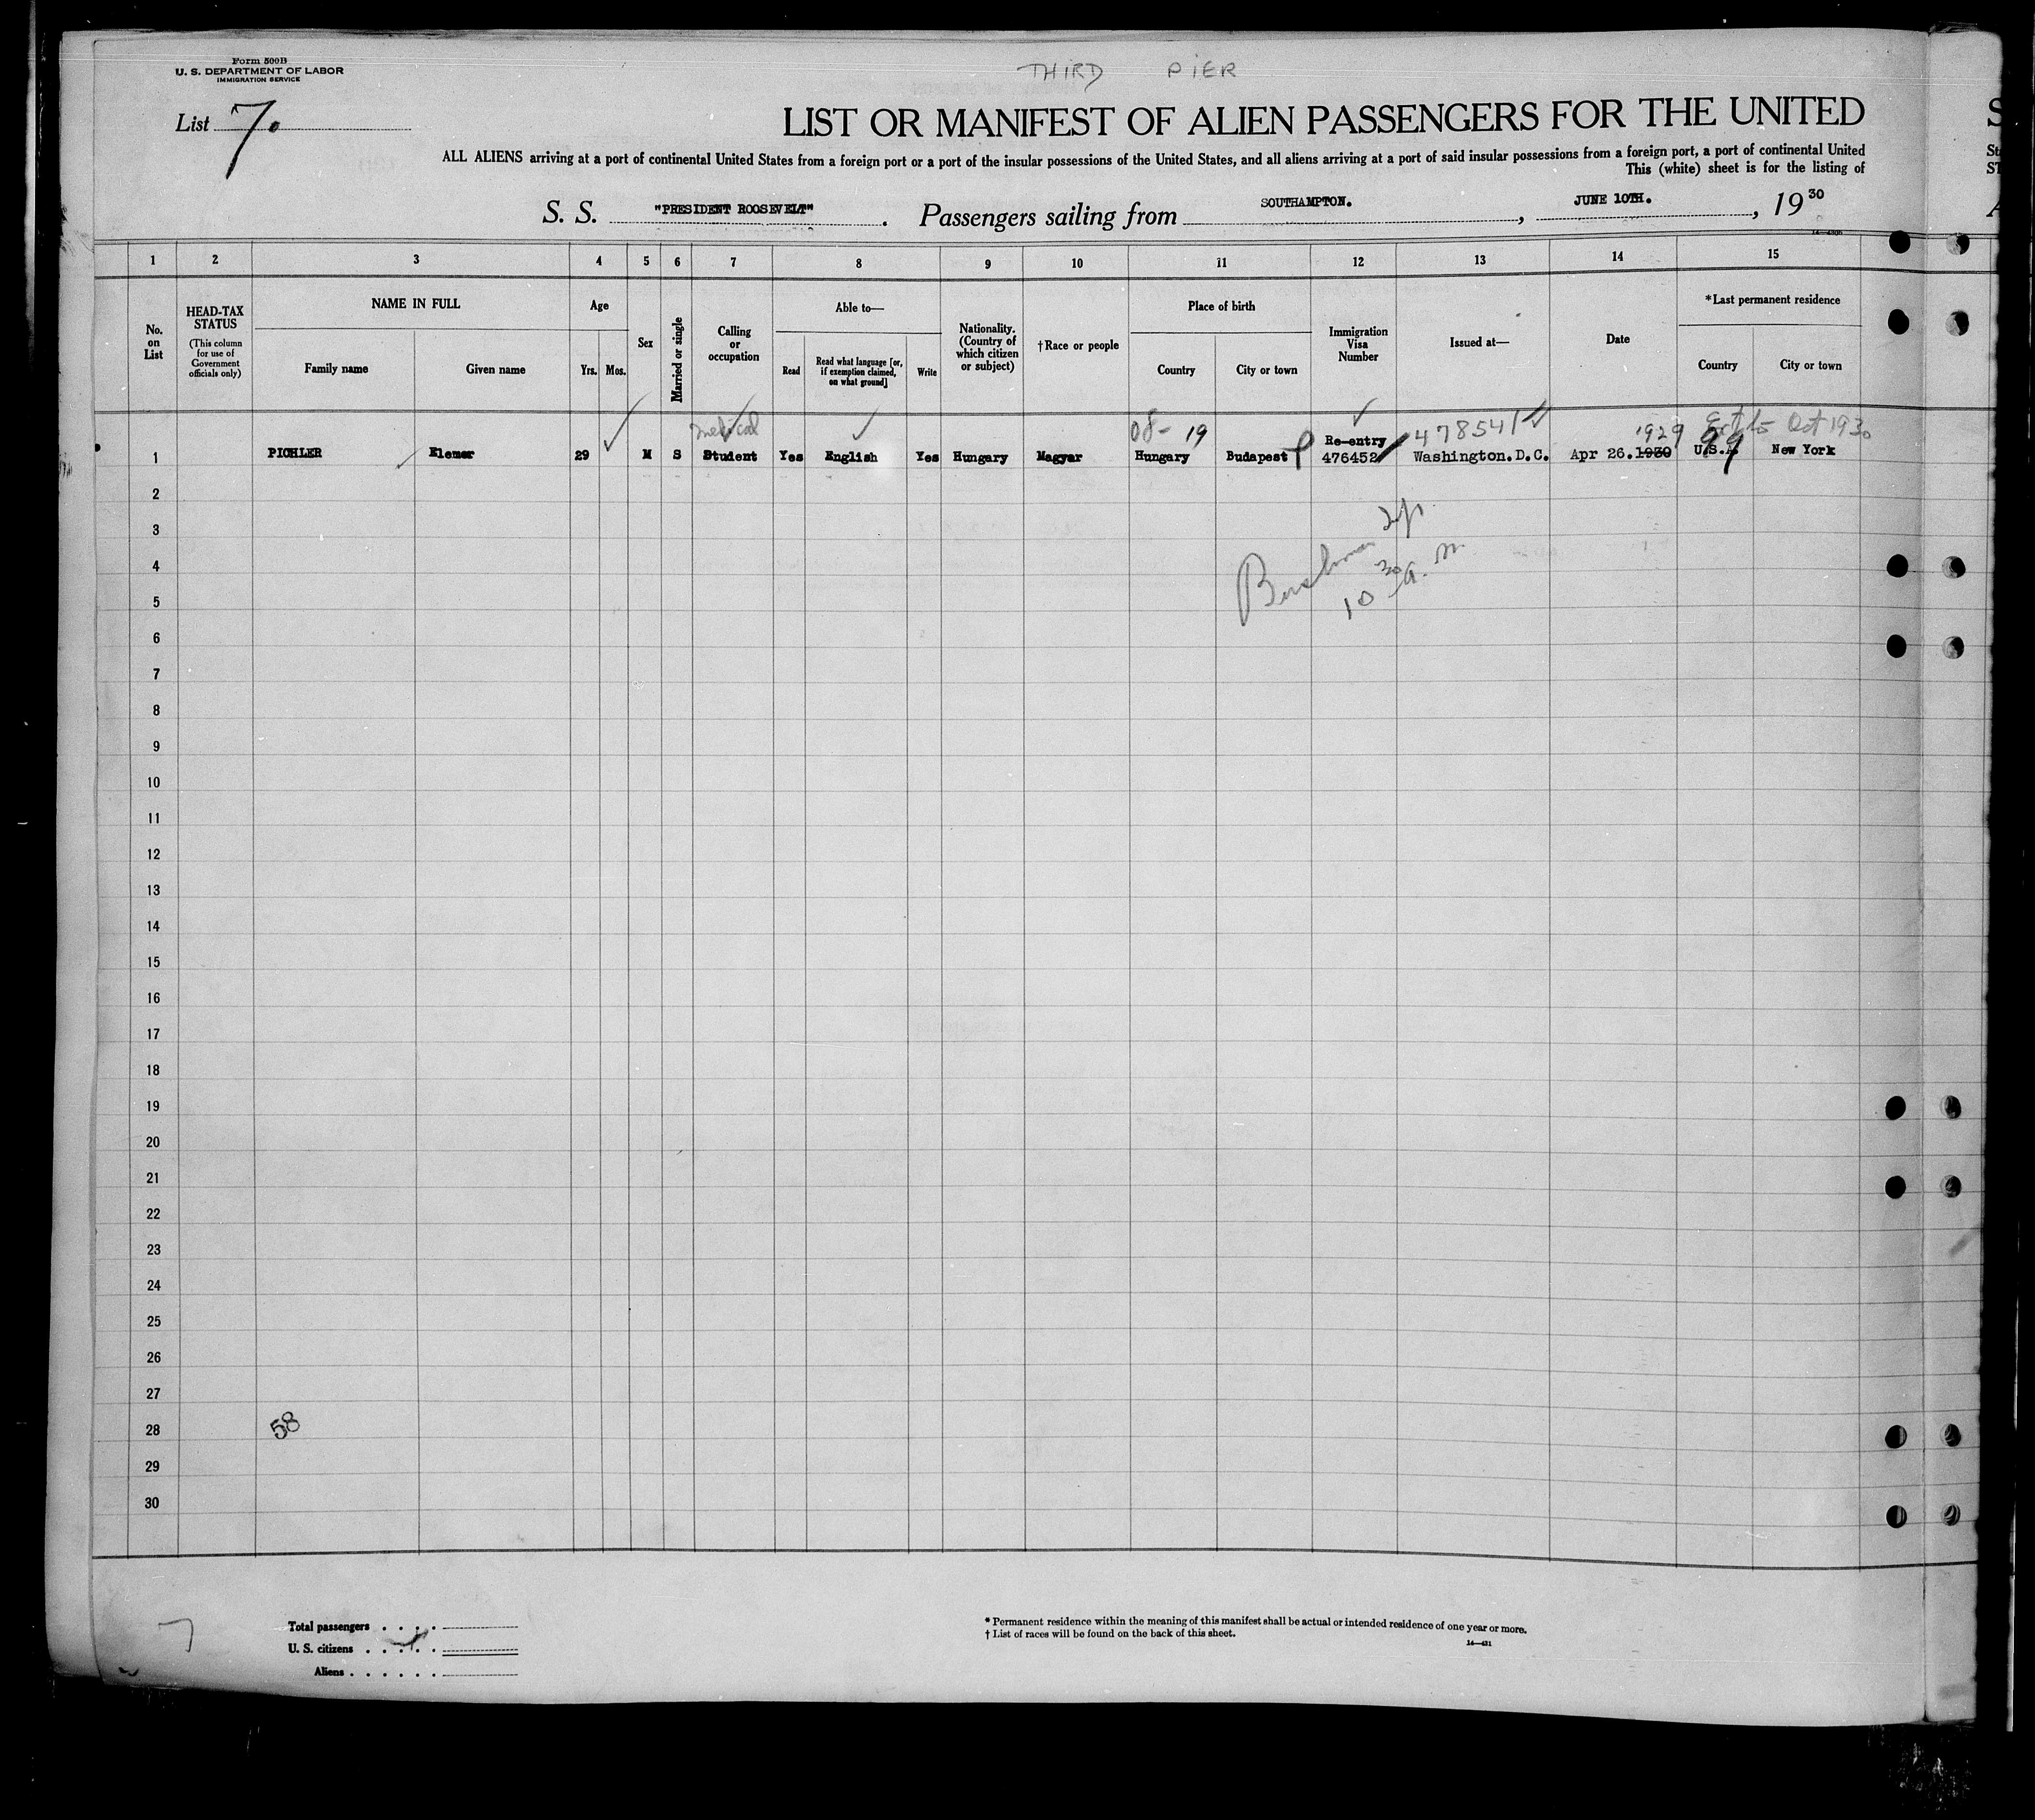 Form 500B
U. S. DEPARTMENT OF LABOR
IMMIGRATION SERVICE
THIRD PIER
List 7
LIST OR MANIFEST OF ALIEN PASSENGERS FOR THE UNITED
ALL ALIENS arriving at a port of continental United States from a foreign port or a port of the insular possessions of the United States, and all aliens arriving at a port of said insular possessions from a foreign port, a port of continental United
This (white) sheet is for the listing of
S. S. "PRESIDENT ROOSEVELT". Passengers sailing from SOUTHAMPTON., JUNE 10TH., 1930
1 2 3 4 5 6 7 8 9 10 11 12 13 14 15
No. on List
HEAD-TAX STATUS
(This column for use of Government officials only)
NAME IN FULL
Family name Given name
Age
Yrs. Mos.
Sex
Married or single
Calling or occupation
Able to—
Read
Read what language [or, if exemption claimed, on what ground]
Write
Nationality. (Country of which citizen or subject)
†Race or people
Place of birth
Country City or town
Immigration Visa Number
Issued at—
Date
*Last permanent residence
Country City or town
medical 08- 19 478541 1929 Oct 1930
1 PICHLER Elemer 29 M S Student Yes English Yes Hungary Magyar Hungary Budapest Re-entry 476452 Washington.D.C. Apr 26.1930 U.S.A. New York
2
3
4
10 30 a. m.
5
6
7
8
9
10
11
12
13
14
15
16
17
18
19
20
21
22
23
24
25
26
27
28
58
29
30
Total passengers . . . .
U. S. citizens . . . . .
Aliens . . . . . .
7
* Permanent residence within the meaning of this manifest shall be actual or intended residence of one year or more.
† List of races will be found on the back of this sheet.
14—431